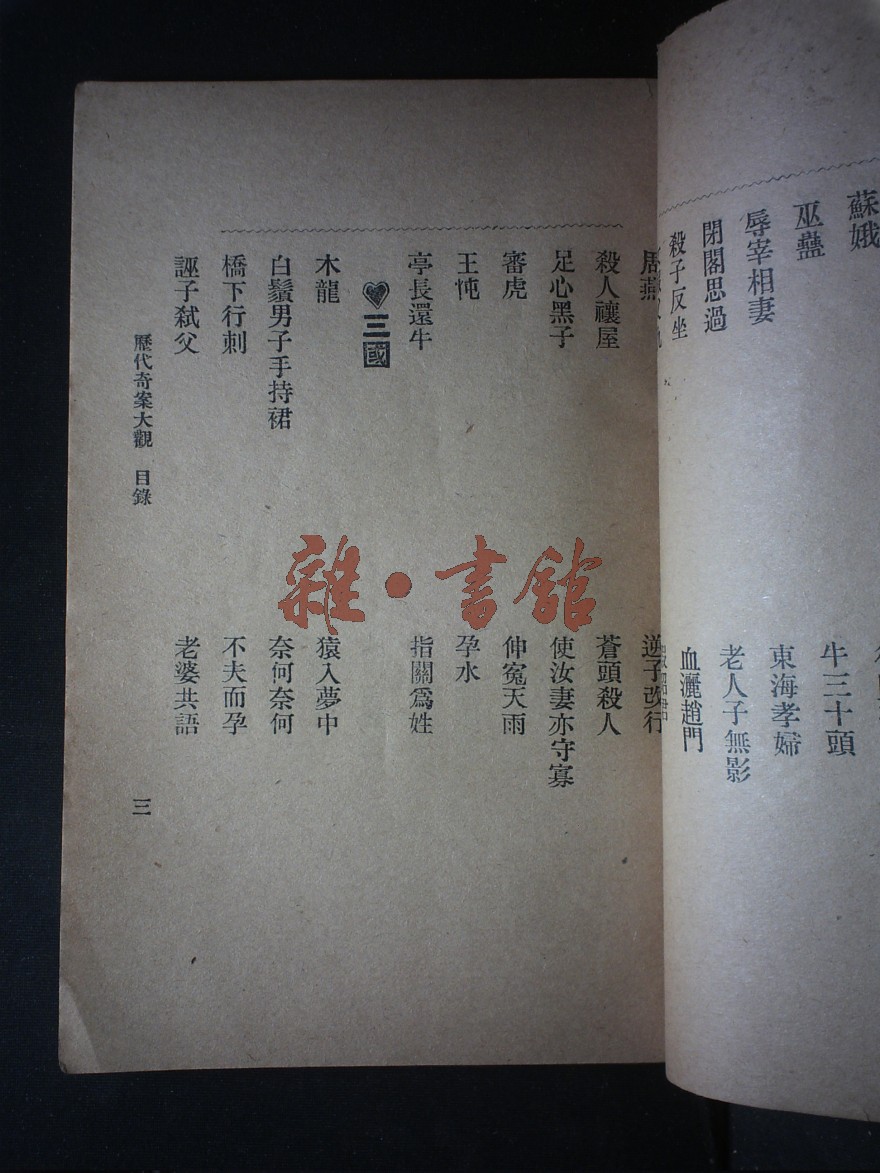 蘇娥
巫蠱
牛三十頭
辱宰相妻
東海孝婦
閉閣思過
老人子無影
殺子反坐
血灑趙門
周燕
逆子改行
殺人禳屋
蒼頭殺人
足心黑子
使汝妻亦守寡
審虎
伸冤天雨
王忳
孕水
亭長還牛
指關爲姓
三國
木龍
猿入夢中
白鬚男子手持裙
奈何奈何
橋下行刺
不夫而孕
誣子弒父
老婆共語
歷代奇案大觀 目錄
三
雜·書館